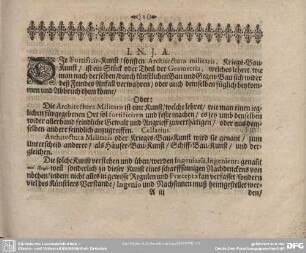 I. N. J. A.
Die Fortification-Kunst / sonsten Architectura militaris, Kriegs-Bau-
Kunst / ist ein Stück oder Theil der Geometria, welches lehret wie
man nach derselben / durch künstlichen Bau und Gegen-Bau sich wider
des Feindes Anfall verwahren / oder auch demselben füglich beykommen
und Abbruch thun könne /
Oder:
Die Architectura Militaris ist eine Kunst / welche lehret / wie man einen jeg-
lichen fürgegebenen Ort sol fortificiren und feste machen / es sey umb denselben
wider allerhand feindliche Gewalt und Angriff zu
demselben andere feindlich anzugreffen. Cellarius.
Architectura Militaris oder Kriegs-Bau-Kunst wird sie genant / zum
Unterscheid anderer / als Häuser-Bau-Kunst / Schiff-Bau-Kunst / und der-
gleichen.
Die solche Kunst verstehen und üben / werden Ingeniarii, Ingenieurs genañt
weil sonderlich zu dieser Kunst eines scharffsinnigen Nachdenckens
vonnöthen / indem nicht alles in gewisse Regulen und Præcepta kan verfasset / sondern
viel des Künstlers Verstande / Ingenio und Nachsinnen muß heimgestellet wer-
A iij
den /